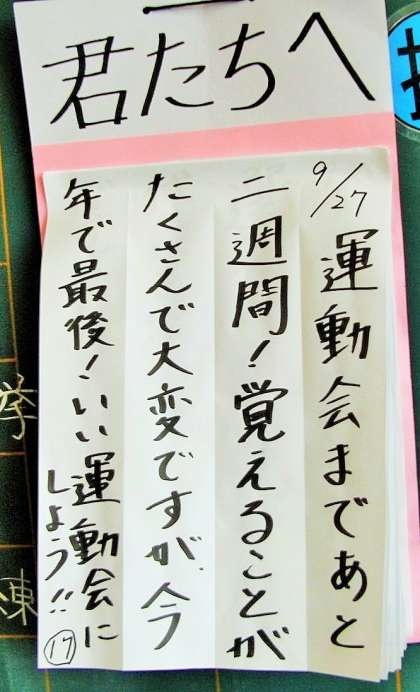 君たちへ
9/27 運動会まであと
二週間！覚えることが
たくさんで大変ですが、今
年で最後！いい運動会に
しよう!!
⑰
挙
練